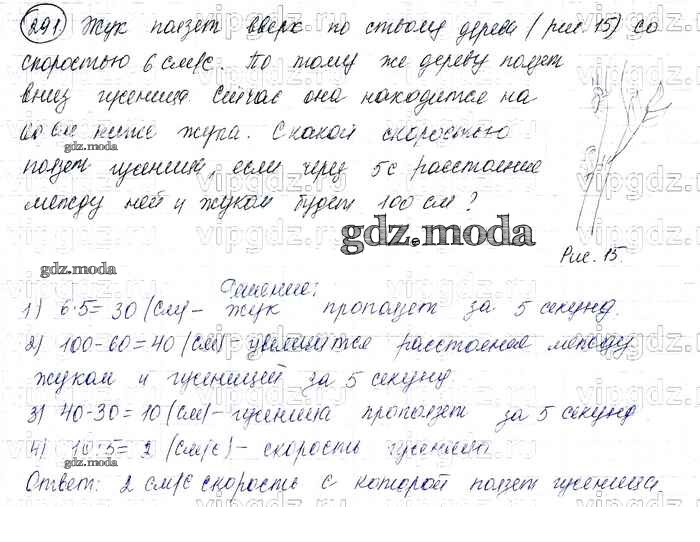 291 Жук ползет вверх по стволу дерева (рис. 15) со
скоростью 6 см/с. По тому же дереву ползет
вниз гусеница. Сейчас она находится на
60 см ниже жука. С какой скоростью
gdz.moda
ползет гусеница, если через 5с расстояние
между ней и жуком будет 100 см?
gdz.moda
Рис. 15.
gdz.moda
Решение:
1) 6·5=30 (см) - жук проползет за 5 секунд.
2) 100-60=40 (см) - увеличится расстояние между
жуком и гусеницей за 5 секунд.
3) 40-30=10 (см) - гусеница проползет за 5 секунд
4) 10:5=2 (см/с) - скорость гусеницы.
gdz.moda
Ответ: 2 см/с скорость с которой ползет гусеница.
gdz.moda
vipgdz.ru